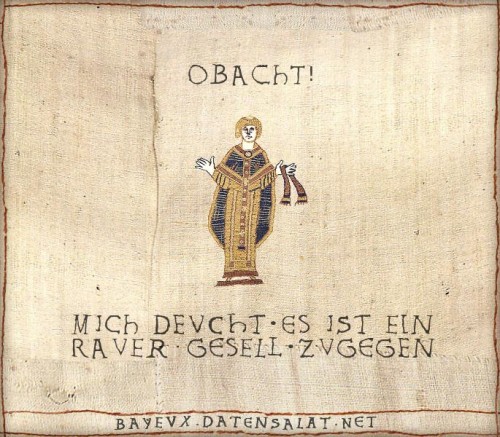 OBACHT!
MICH DEVCHT · ES IST EIN
RAVER · GESELL · ZVGEGEN
BAYEVX.DATENSALAT.NET